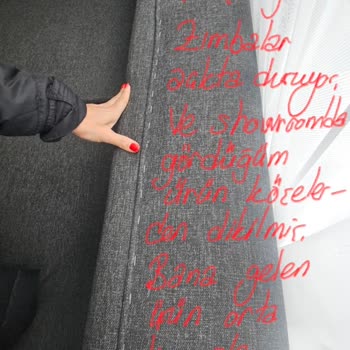 Zımbalar
açıkta duruyor.
Ve showroomda
gördüğüm
ürün köşeler-
den dikilmiş.
Bana gelen
ürün orta